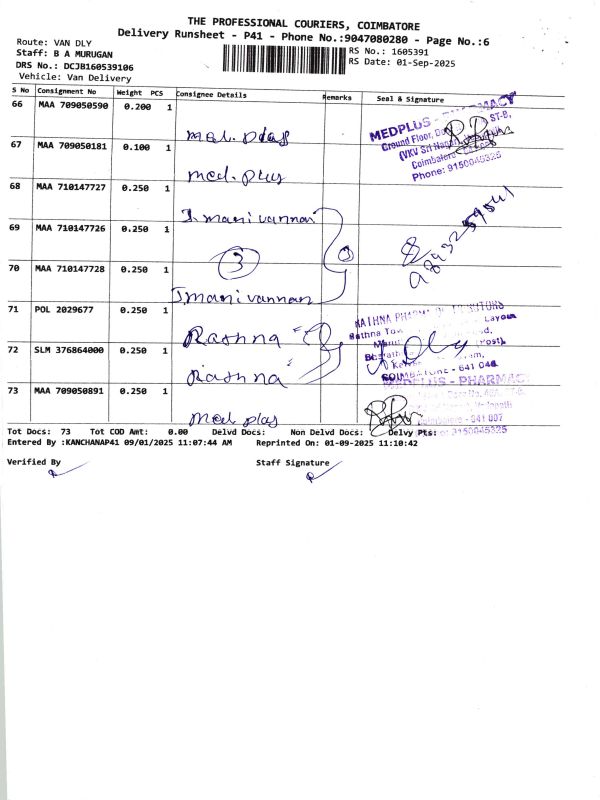 THE PROFESSIONAL COURIERS, COIMBATORE
Delivery Runsheet - P41 - Phone No.:9047080280 - Page No.:6
Route: VAN DLY
Staff: B A MURUGAN
RS No.: 1605391
DRS No.: DCJB160539106
RS Date: 01-Sep-2025
Vehicle: Van Delivery
S No Consignment No Weight PCS Consignee Details Remarks Seal & Signature
66 MAA 709050590 0.200 1
MEDPLUS - PHARMACY
Ground Floor, ST-B,
(VKV Sri Nagar
Coimbatore
Phone: 9150045325
67 MAA 709050181 0.100 1 med. plus
68 MAA 710147727 0.250 1 J. manivannan
69 MAA 710147726 0.250 1 3
70 MAA 710147728 0.250 1 J manivannan
71 POL 2029677 0.250 1 Rathna
RATHNA PHARMA DISTRIBUTORS
Rathna Layout
(Post),
COIMBATORE - 641 046
72 SLM 376864000 0.250 1 Rathna
MEDPLUS - PHARMACY
Coimbatore - 641 007
3150045325
73 MAA 709050891 0.250 1 med plus
Tot Docs: 73 Tot COD Amt: 0.00 Delvd Docs: Non Delvd Docs: Delvy Pts:
Entered By :KANCHANAP41 09/01/2025 11:07:44 AM Reprinted On: 01-09-2025 11:10:42
Verified By Staff Signature